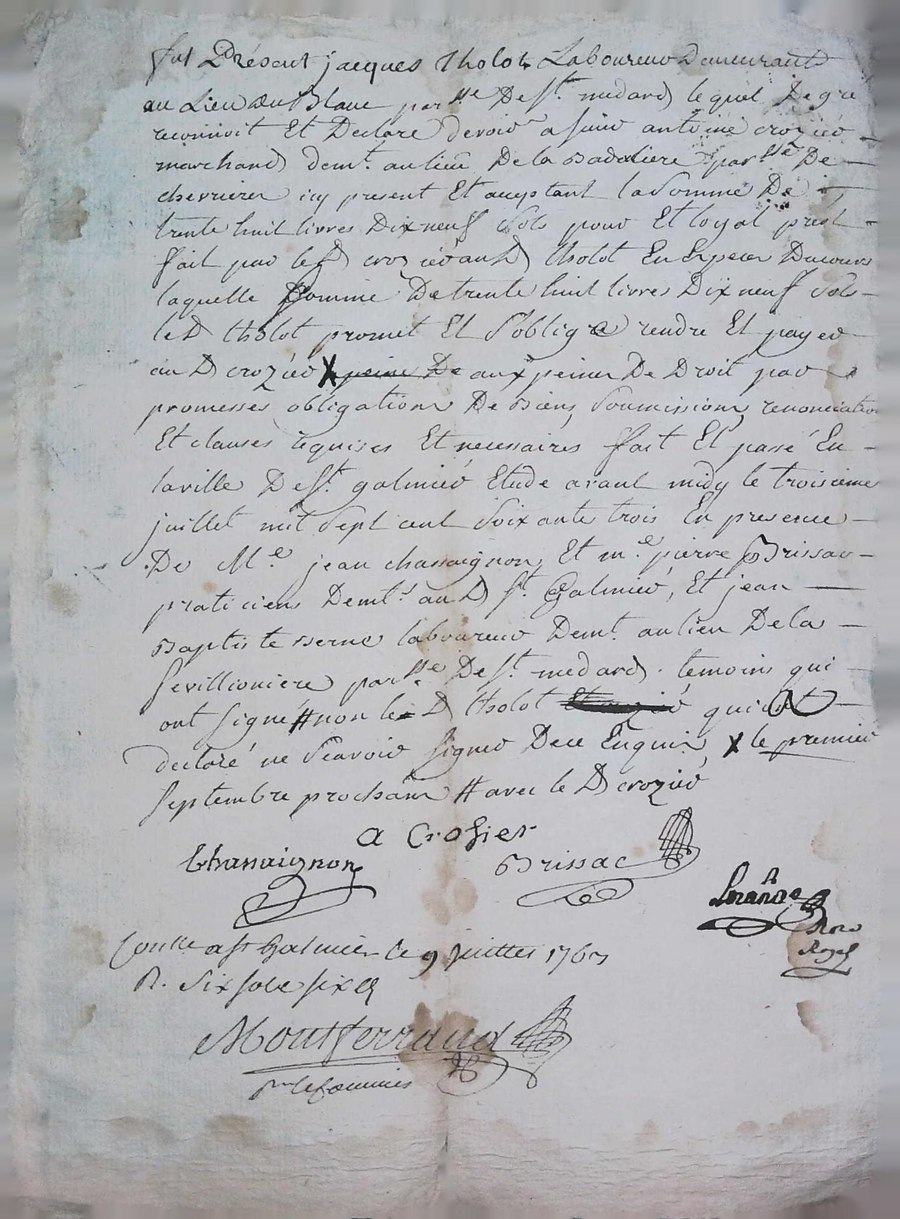 fut Présent jacques tholot Laboureur Demeurant
au Lieu du Blanc parsse De st. medard lequel De gré
reconnoit Et Declare devoir a sieur antoine crozier
marchand demt. au lieu De la Badoliere parsse De
chevrieres icy present Et acceptant la Somme De
trente huit livres Dix neuf Sols pour Et loyal prest
fait par led crozier aud tholot En Especes Du cours
laquelle Somme De trente huit livres Dix neuf Sols
le D tholot promet Et S'oblige rendre Et payer
au D crozier X a peine De aux peines De Droit par
promesses obligations De Biens, Soumissions, renonciations
Et clauses requises Et necessaires fait Et passé En
la ville De st. galmier Etude avant midy le troisieme
juillet mil Sept cent Soixante trois En presence
De Me. jean chassaignon, Et me. pierre Brissac
praticiens Demts. au D st. Galmier, Et jean
Baptiste Berne laboureur Demt. au lieu De la
sevillioniere parsse De st. medard. temoins qui
ont signé # non le D tholot qui a
declaré ne Scavoir signer De ce Enquis X le premier
septembre prochain # avec le D crozier
a Crosier
Chassaignon Brissac
Nore
Royal
Conlle a st Galmier le 9 juillet 1763
R. six sols six d
Montferrand
pour le commis